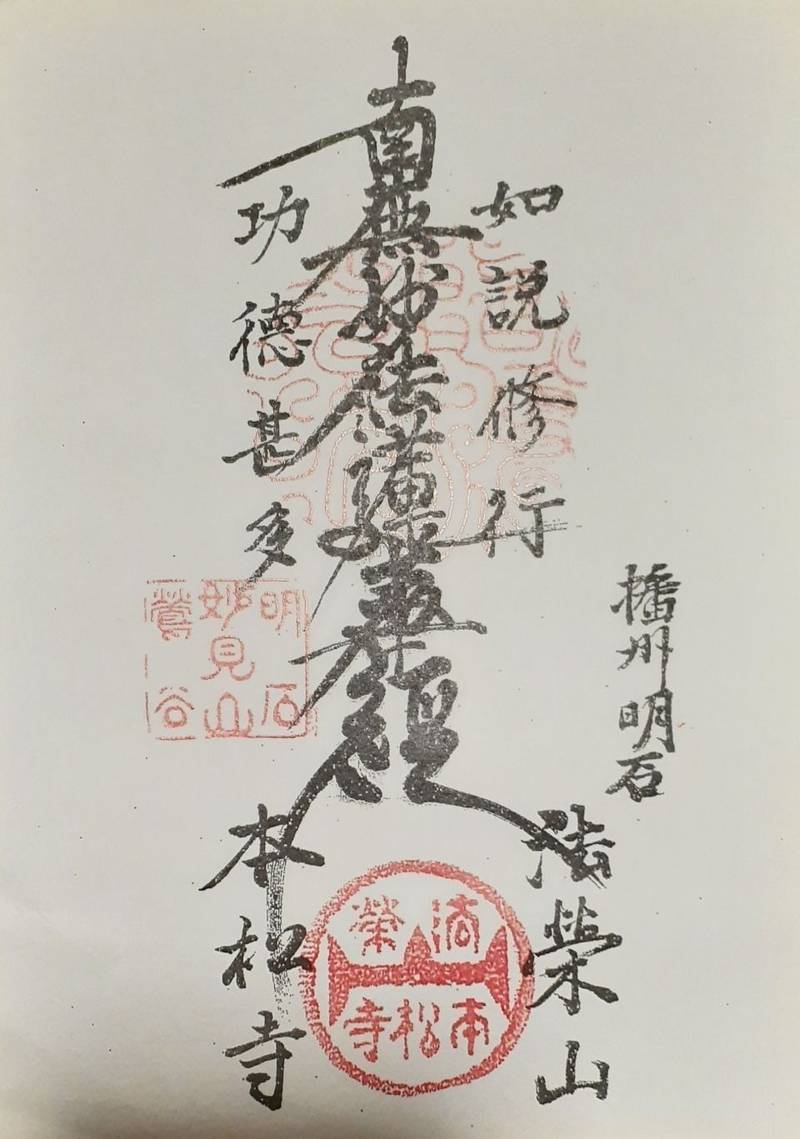 播州明石
如説修行
南無妙法蓮華経
功徳甚多
法榮山
本松寺
明石
妙見山
鶯谷
法榮
本松寺